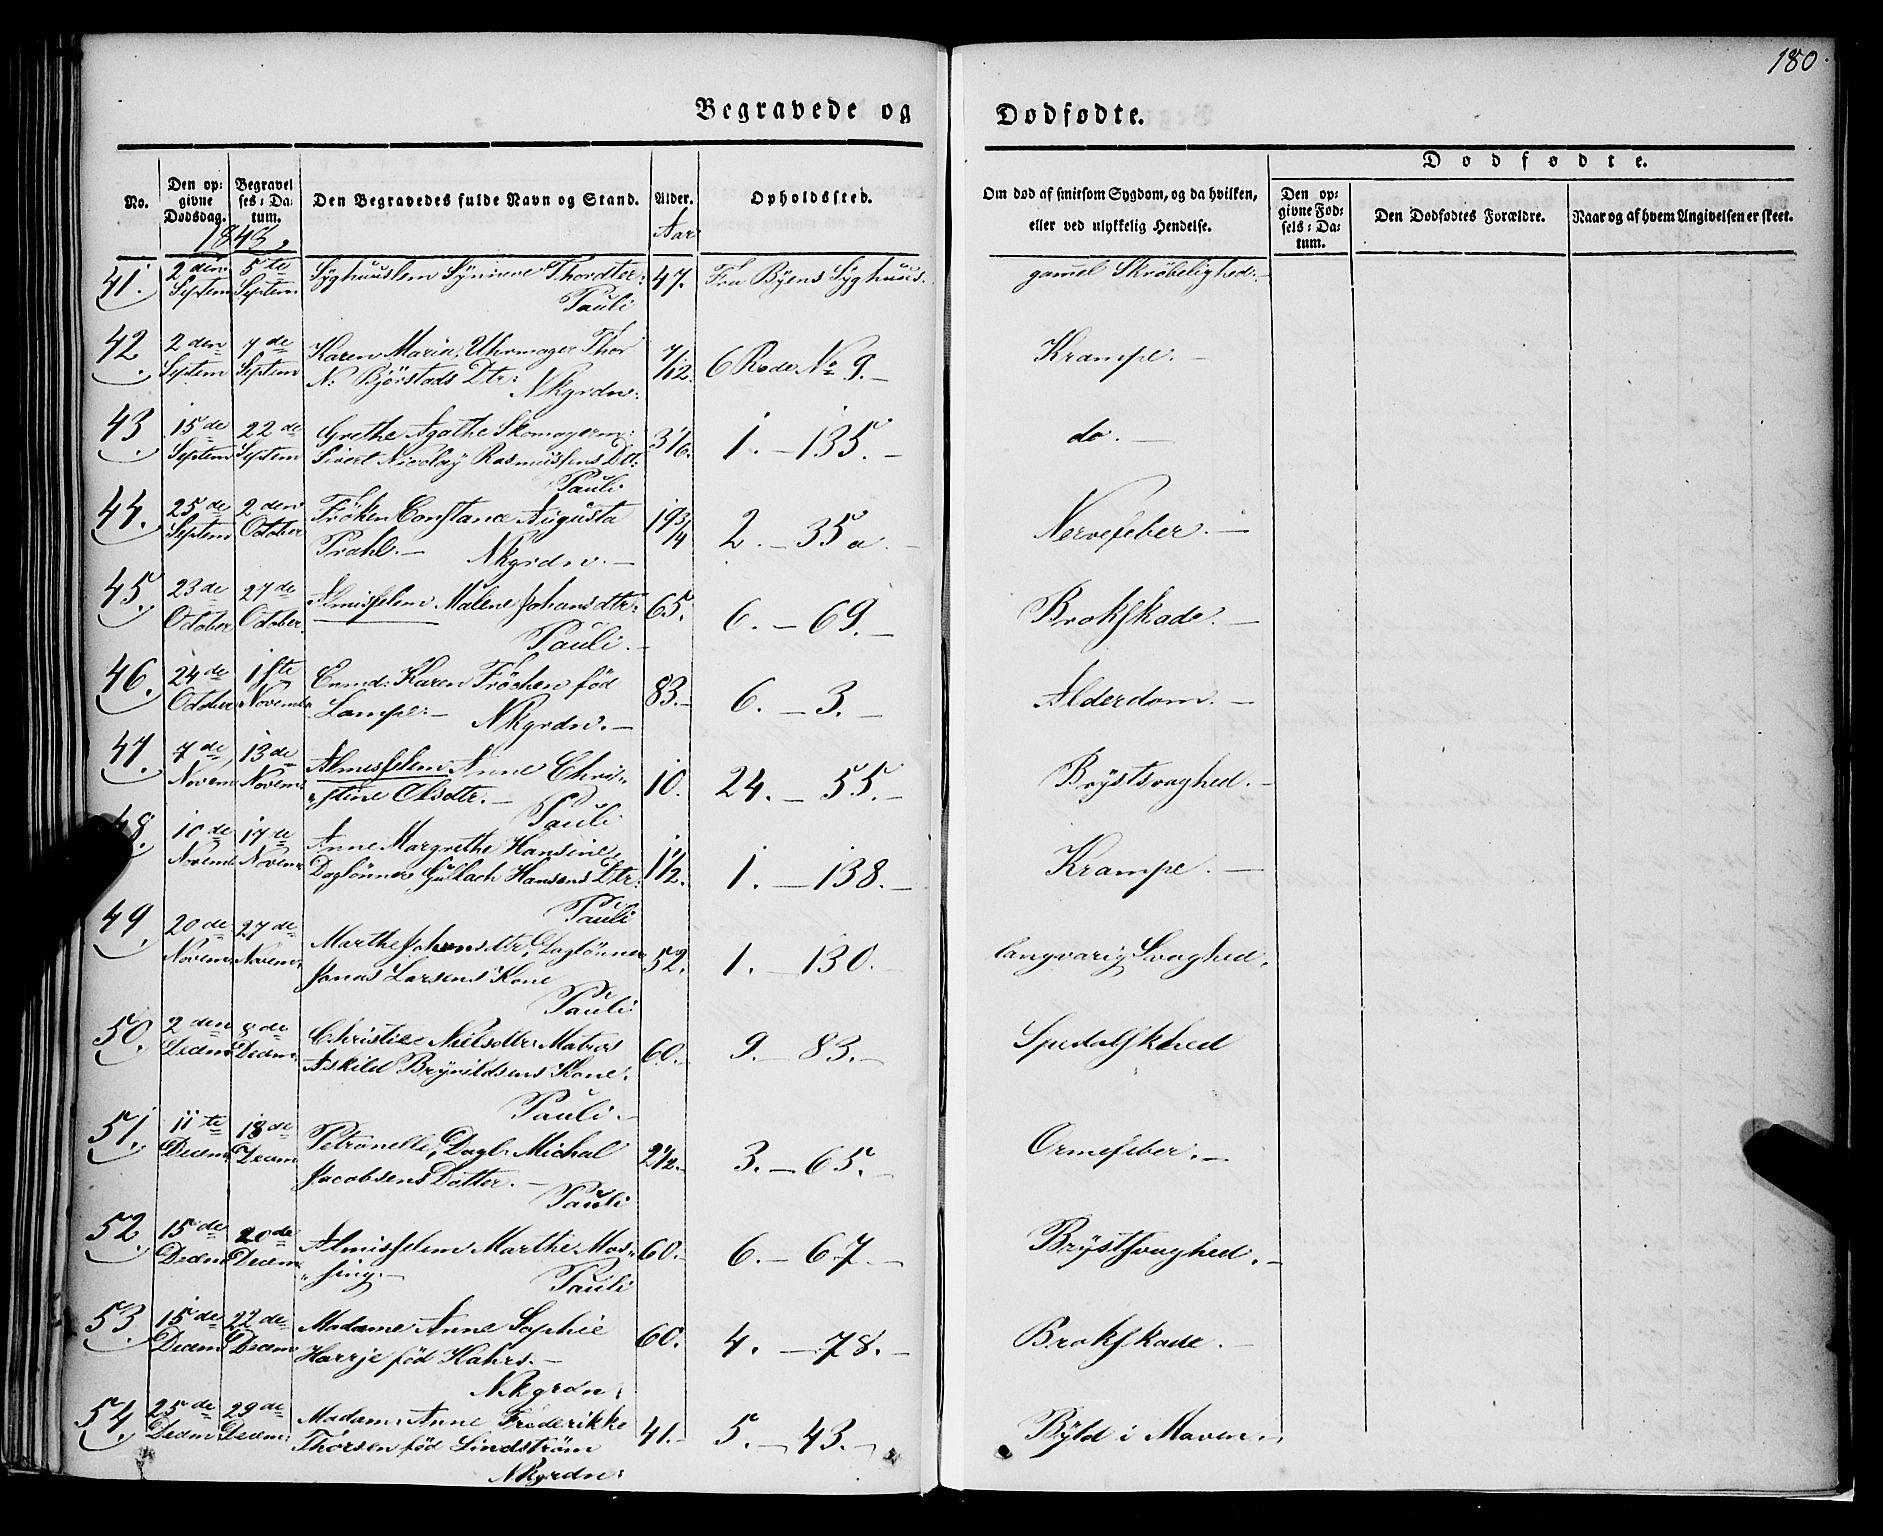 180.
Begravede og Dødfødte.
No.
Den opgivne Dødsdag.
Begravelses-Datum.
Den Begravedes fulde Navn og Stand.
Alder.
Opholdssted.
Om død af smitsom Sygdom, og da hvilken,
eller ved ulykkelig Hendelse.
Dødfødte.
Den opgivne Fødsels-Datum.
Den Dødfødtes Forældre.
Naar og af hvem Angivelsen er skeet.
1843,
Aar
41. 2den Septem 5te Septem Syghuuslem Syneve Thordtr: 47. Fra Byens Syghuus. gamel Skrøbelighed.-
Pauli
42. 2den Septem 7de Septem Karen Maria, Uhrmager Thor 7/12. 6 Rode No 9.- Krampe.-
N: Bjørstads Dtr: Nkgrdn.
43. 15de Septem 22de Septem Grethe Agathe Skomagerm: 3 1/6. 1.-135.- do.-
Sivert Nicolay Rasmussens Dtr:
Pauli
44. 25de Septem 2den October Frøken Constance Augusta 19 3/4 2.-35 a.- Nervefeber.-
Prahl.- Nkgrdn.-
45. 23de October 27de October Almisselem Malene Johansdtr: 65. 6.-69.- Brokskade.-
Pauli.-
46. 24de October 1ste Novemb Enmd: Karen Frøchen fød 83.- 6.-3.- Alderdom.-
Lampe.- Nkgrdn.-
47. 7de Novem 13de Novem Almisselem Anne Chri- 10. 24.-55.- Brystsvaghed.-
"stine Olsdtr.- Pauli
48. 10de Novemb 17de Novem Anne Margrethe Hansine, 1 1/2. 1.-138.- Krampe.-
Dagløнner Gullach Hansens Dtr:
Pauli
49. 20de Novem 27de Novem: Marthe Johansdtr, Dagløнner 52. 1.-130.- langvarig Svaghed.
Jonas Larsens Kone
Pauli
50. 2den Decem 8de Decem: Christie Nielsdtr: Matros 60.- 9.-83.- Spedalskhed
Askild Brynildsens Kone.
Pauli.-
51. 11te Decem: 18de Decem Petronelle, Dagl: Michal 2 1/2.- 3.-65.- Ormefeber.-
Jacobsens Datter.-
Pauli
52. 15de Decem 20de Decem Almisselem Marthe Mos- 60.- 6.-67.- Brystsvaghed.-
"sing.- Pauli
53. 15de Decem 22de Decem Madame Anne Sophie 60. 4.-78.- Brokskade.-
Harrje fød Kahrs.-
Nkgrdn.
54. 25de Decem 29de Decem: Madam: Anne Frederikke 41.- 5.-43.- Byld i Maven.
Thorsen fød Lindstrøm
Nkgrdn: